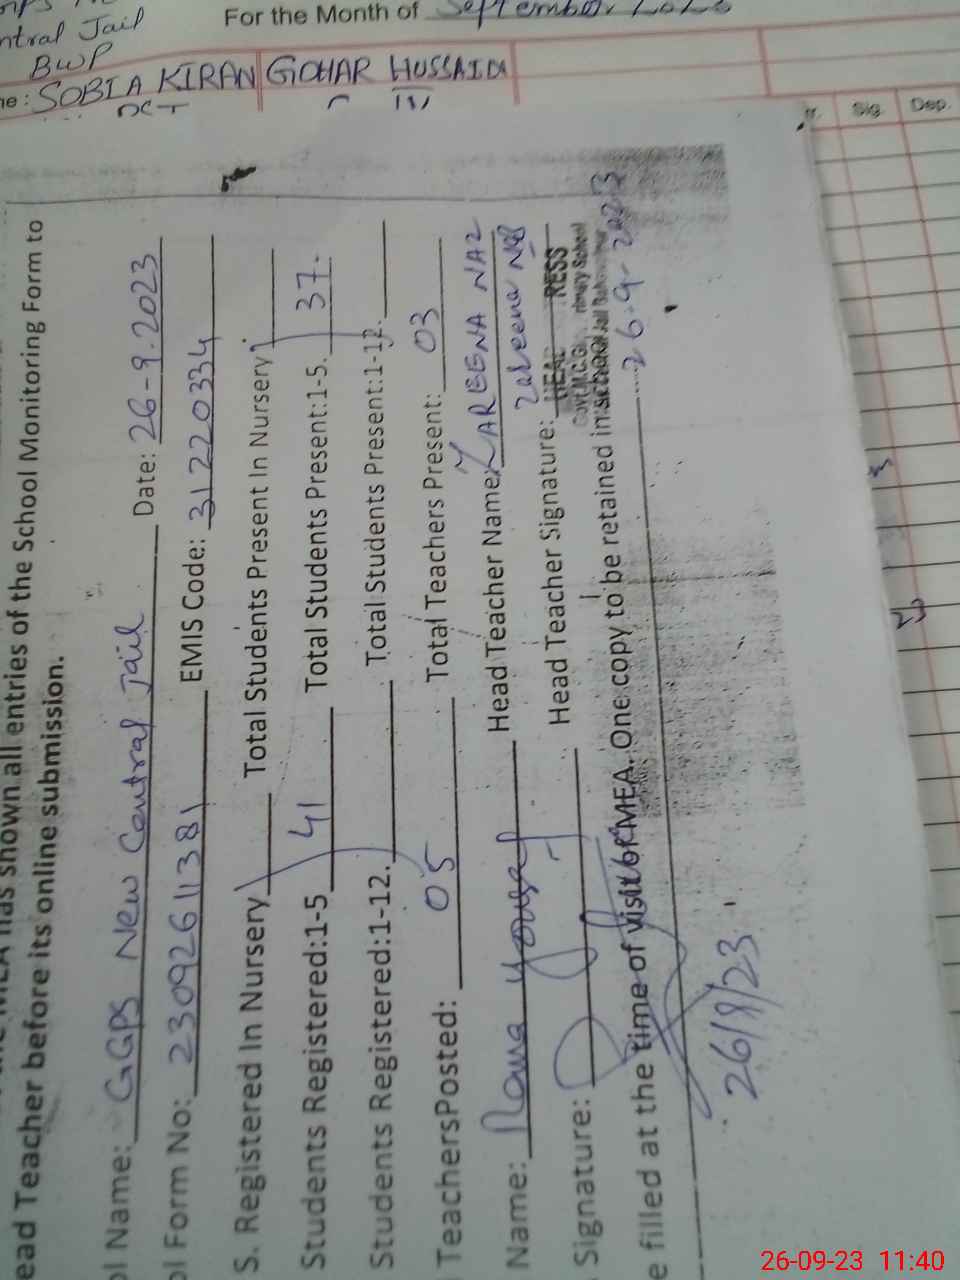 For the Month of September
ntral Jail
BWP
ne: SOBIA KIRAN GOHAR HUSSAIN
Sig. Dep.
ead Teacher before its online submission.
has shown all entries of the School Monitoring Form to
ol Name: GGPS New Central Jail Date: 26-9-2023
ol Form No: 23092611381 EMIS Code: 31220334
S. Registered In Nursery Total Students Present In Nursery
Students Registered:1-5 41 Total Students Present:1-5. 37-
Students Registered:1-12. Total Students Present:1-12.
TeachersPosted: 05 Total Teachers Present: 03
Name: Rana Yousaf Head Teacher Name: ZAREENA NAZ
Zareena Naz
Signature: Head Teacher Signature:
e filled at the time of visit of MEA. One copy to be retained in school 26-9-2023
26/9/23
26-09-23 11:40